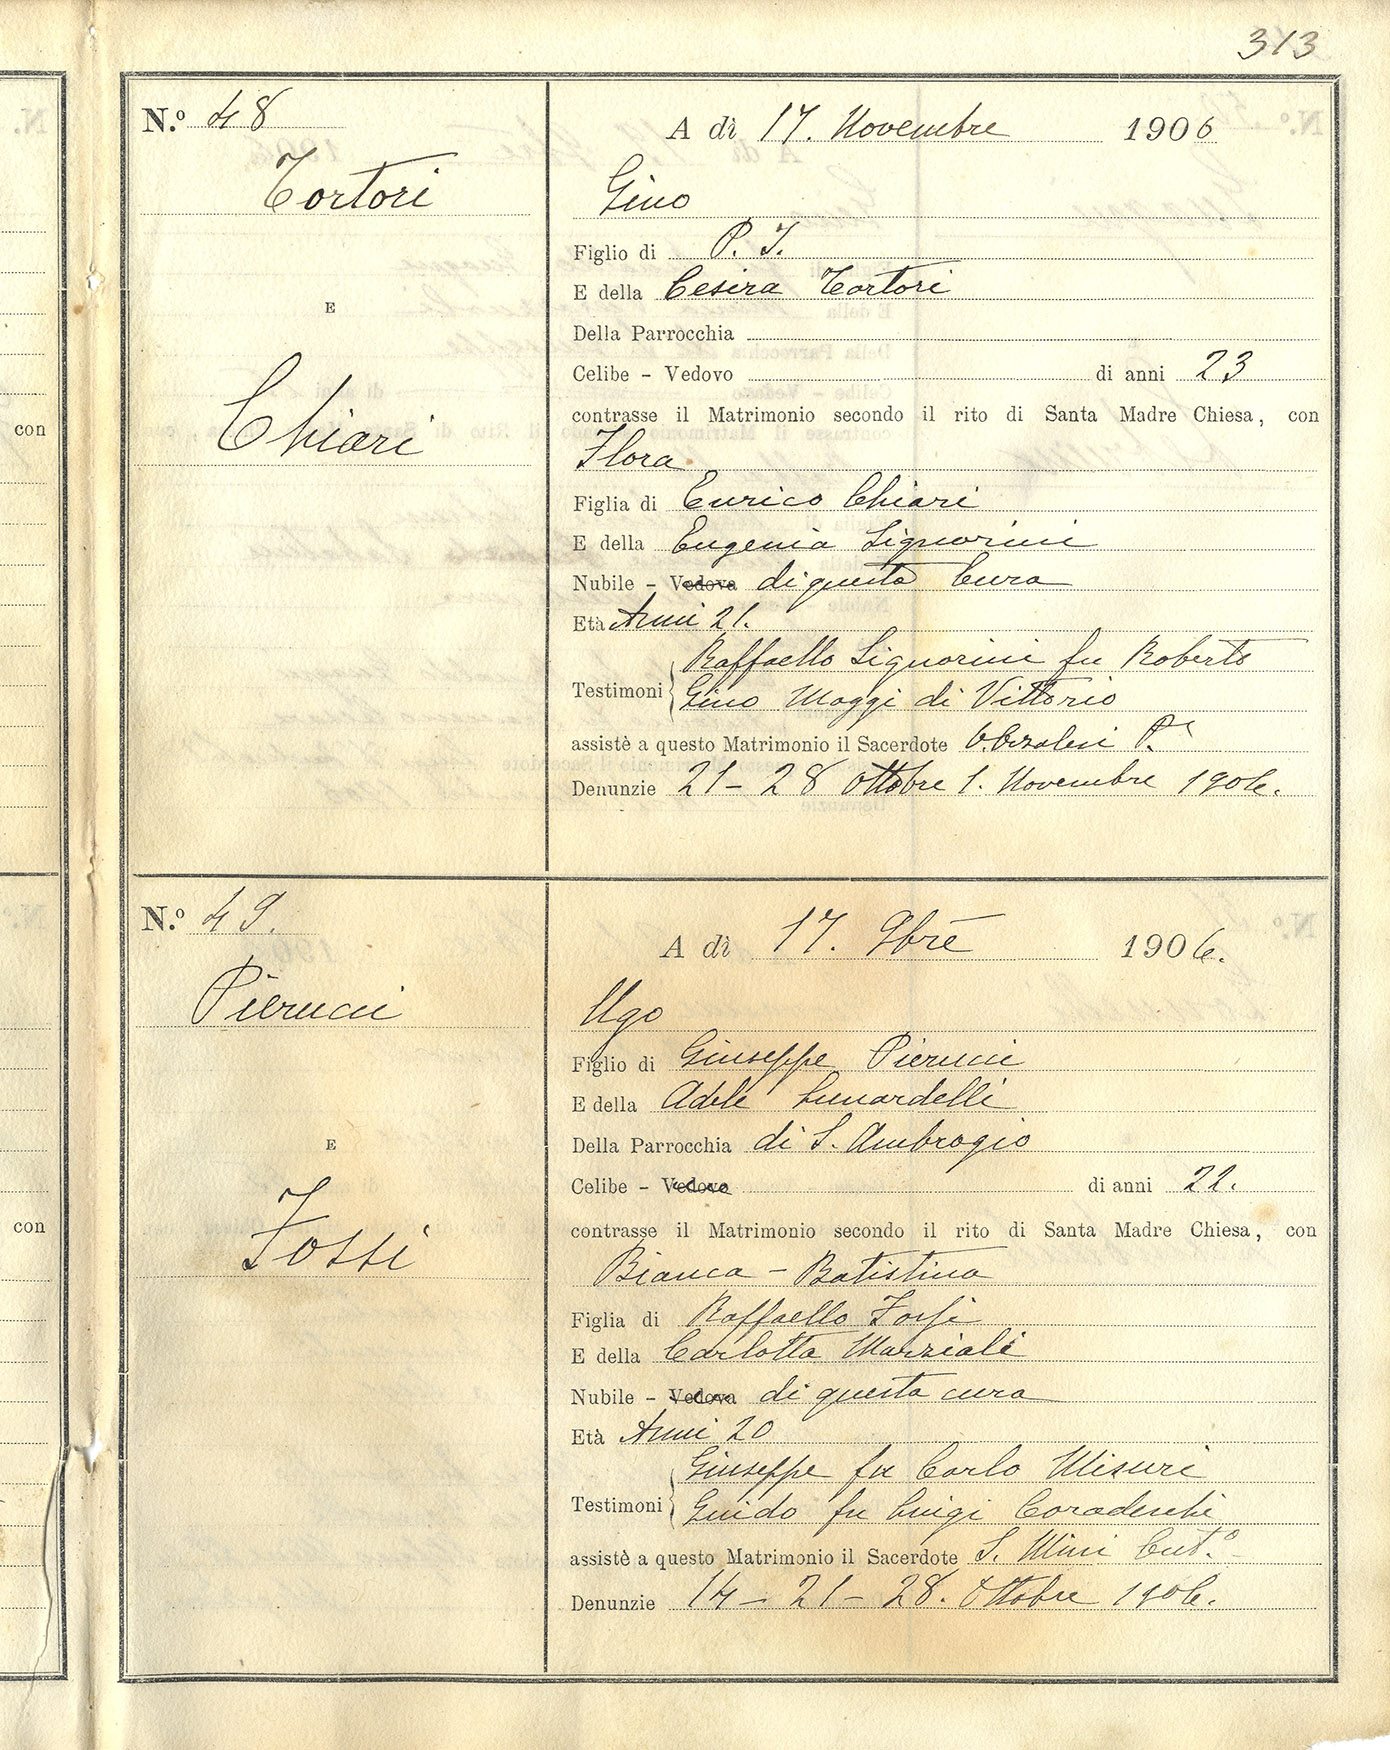 313
N.º 48
A dì 17. Novembre 1906
Tortori
Gino
Figlio di P. I.
E della Cesira Tortori
E
Della Parrocchia
Celibe - Vedovo di anni 23
contrasse il Matrimonio secondo il rito di Santa Madre Chiesa, con
Chiari
Flora
Figlia di Enrico Chiari
E della Eugenia Signorini
Nubile - Vedova di questa Cura
Età Anni 21.
Raffaello Signorini fu Roberto
Testimoni Gino Maggi di Vittorio
assistè a questo Matrimonio il Sacerdote
Denunzie 21 - 28 Ottobre 1. Novembre 1906.
con
N.º 49.
A dì 17. 9bre 1906.
Pierucci
Ugo
Figlio di Giuseppe Pierucci
E della Adele Lunardelli
E
Della Parrocchia di S. Ambrogio
Celibe - Vedovo di anni 22.
contrasse il Matrimonio secondo il rito di Santa Madre Chiesa, con
Fossi
Bianca - Batistina
Figlia di Raffaello Fossi
E della Carlotta Marziali
Nubile - Vedova di questa cura
Età Anni 20
Giuseppe fu Carlo Misuri
Testimoni Guido fu Luigi Coradeschi
assistè a questo Matrimonio il Sacerdote S. Mini Cut.º
Denunzie 14 - 21 - 28. Ottobre 1906.
con